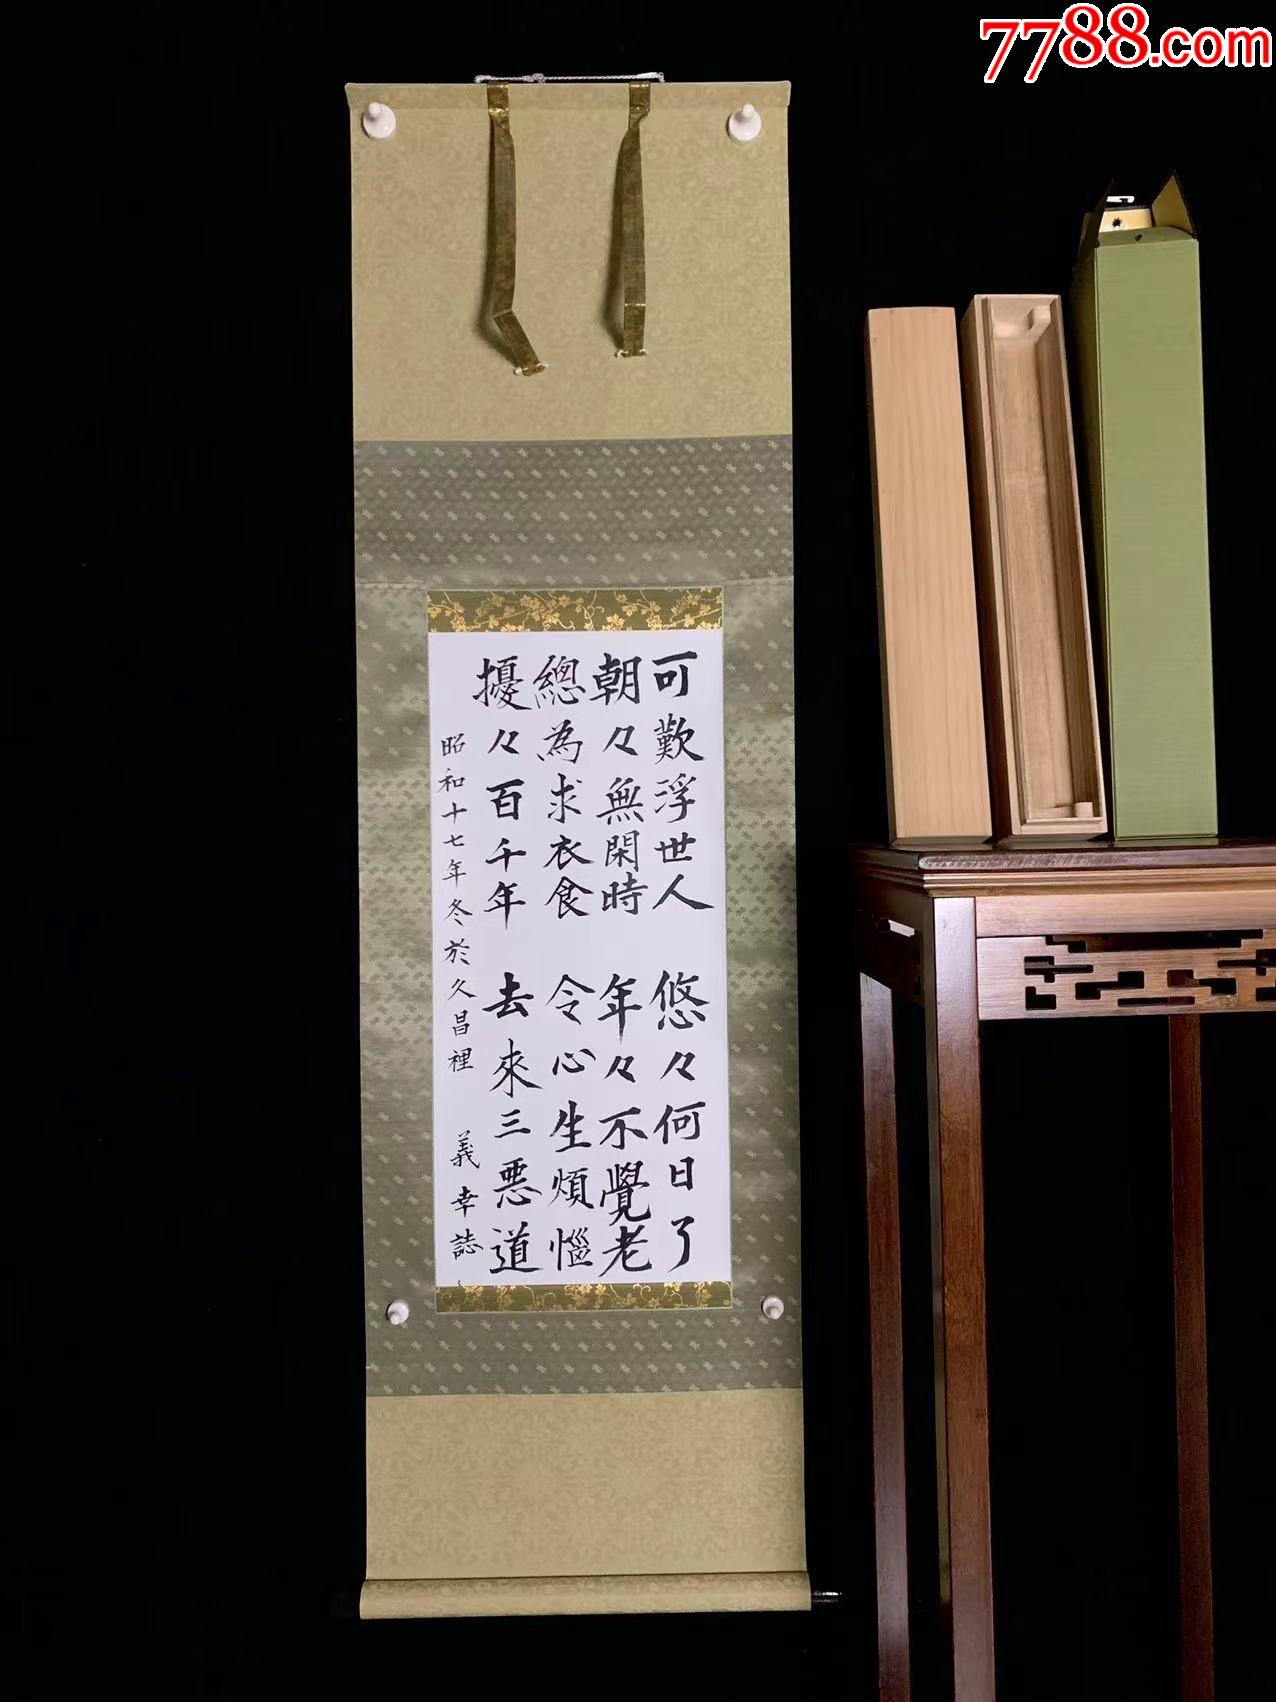 7788.com
可歎浮世人 悠々何日了
朝々無閑時 年々不覺老
總為求衣食 令心生煩惱
擾々百千年 去來三悪道
昭和十七年冬於久昌裡 義幸誌